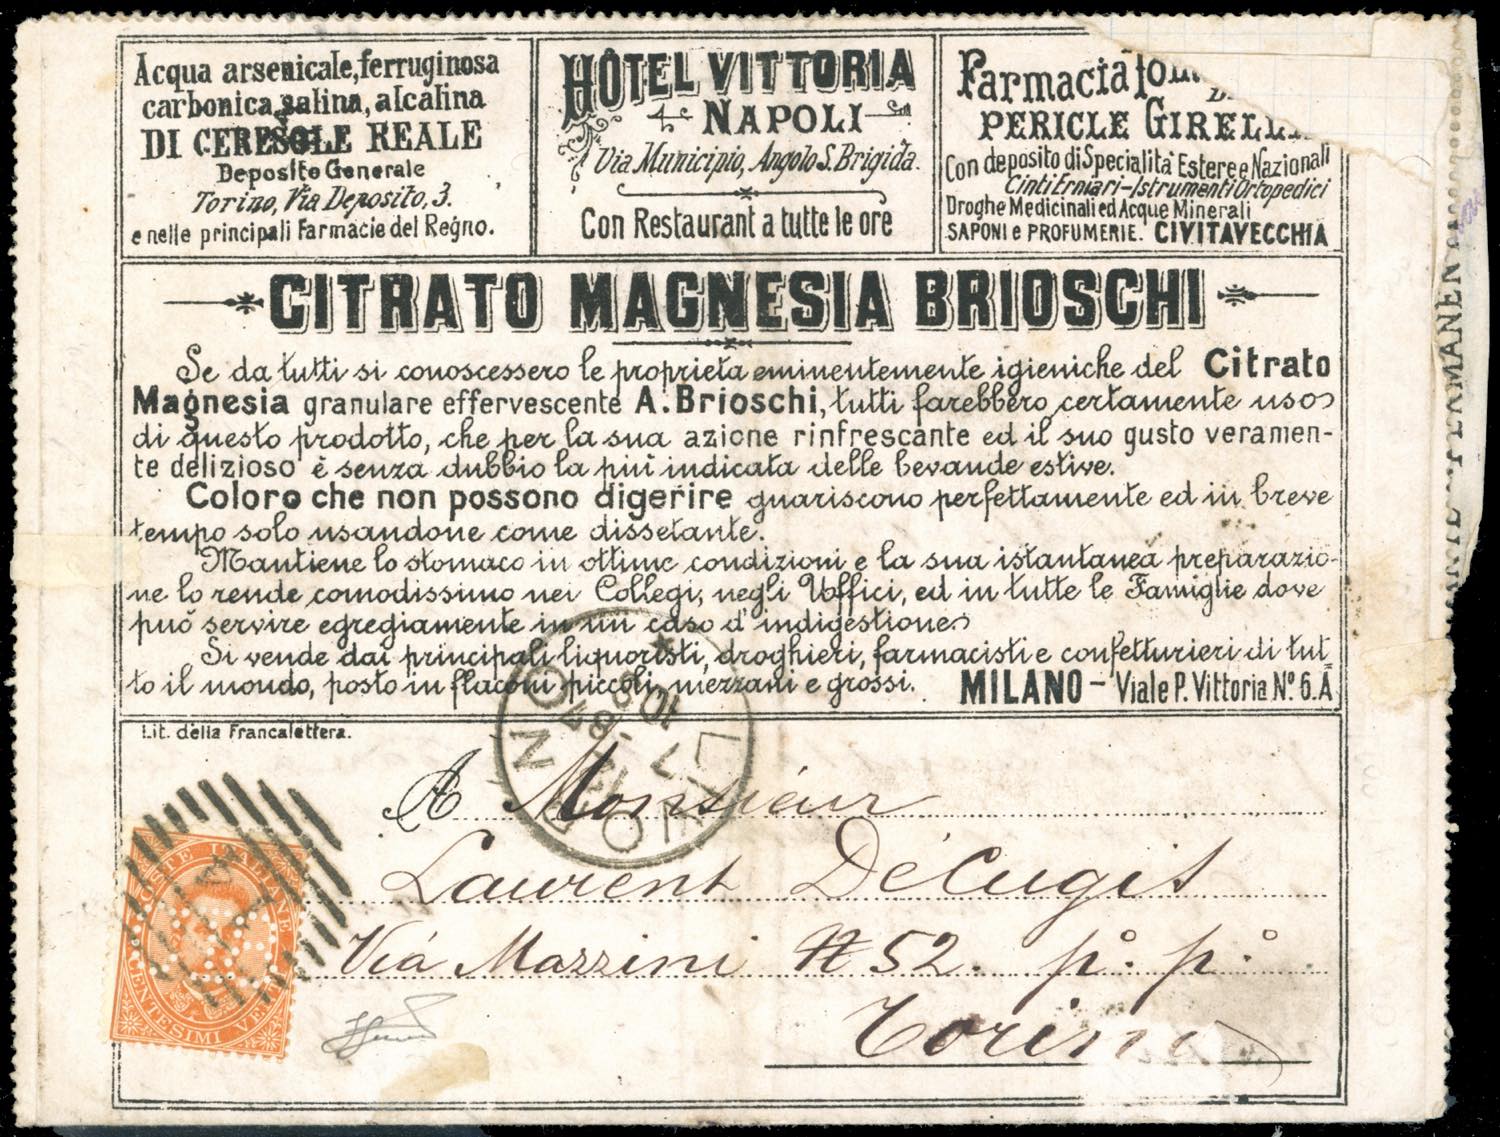 Acqua arsenicale, ferruginosa
carbonica, salina, alcalina
DI CERESOLE REALE
Deposito Generale
Torino, Via Deposito, 3.
e nelle principali Farmacie del Regno.
HÔTEL VITTORIA
NAPOLI
Via Municipio, Angolo S. Brigida.
Con Restaurant a tutte le ore
Farmacia
PERICLE
Con deposito di Specialità Estere e Nazionali
Cinti Erniari-Istrumenti Ortopedici
Droghe Medicinali ed Acque Minerali
SAPONI e PROFUMERIE. CIVITAVECCHIA
CITRATO MAGNESIA BRIOSCHI
Se da tutti si conoscessero le proprietà eminentemente igieniche del Citrato
Magnesia granulare effervescente A. Brioschi, tutti farebbero certamente uso
di questo prodotto, che per la sua azione rinfrescante ed il suo gusto veramen-
te delizioso è senza dubbio la più indicata delle bevande estive.
Coloro che non possono digerire guariscono perfettamente ed in breve
tempo solo usandone come dissetante.
Mantiene lo stomaco in ottime condizioni e la sua istantanea preparazio-
ne lo rende comodissimo nei Collegi, negli Uffici, ed in tutte le Famiglie dove
può servire egregiamente in un caso d'indigestione
Si vende dai principali liquoristi, droghieri, farmacisti e confetturieri di tut-
to il mondo, posto in flaconi piccoli, mezzani e grossi. MILANO - Viale P. Vittoria Nº 6.A
Lit. della Francalettera.
LIVORNO
A Monsieur
Laurent DeCugis
Via Mazzini # 52. p.º p.º
Torino
POSTE ITALIANE
CENTESIMI VENTI